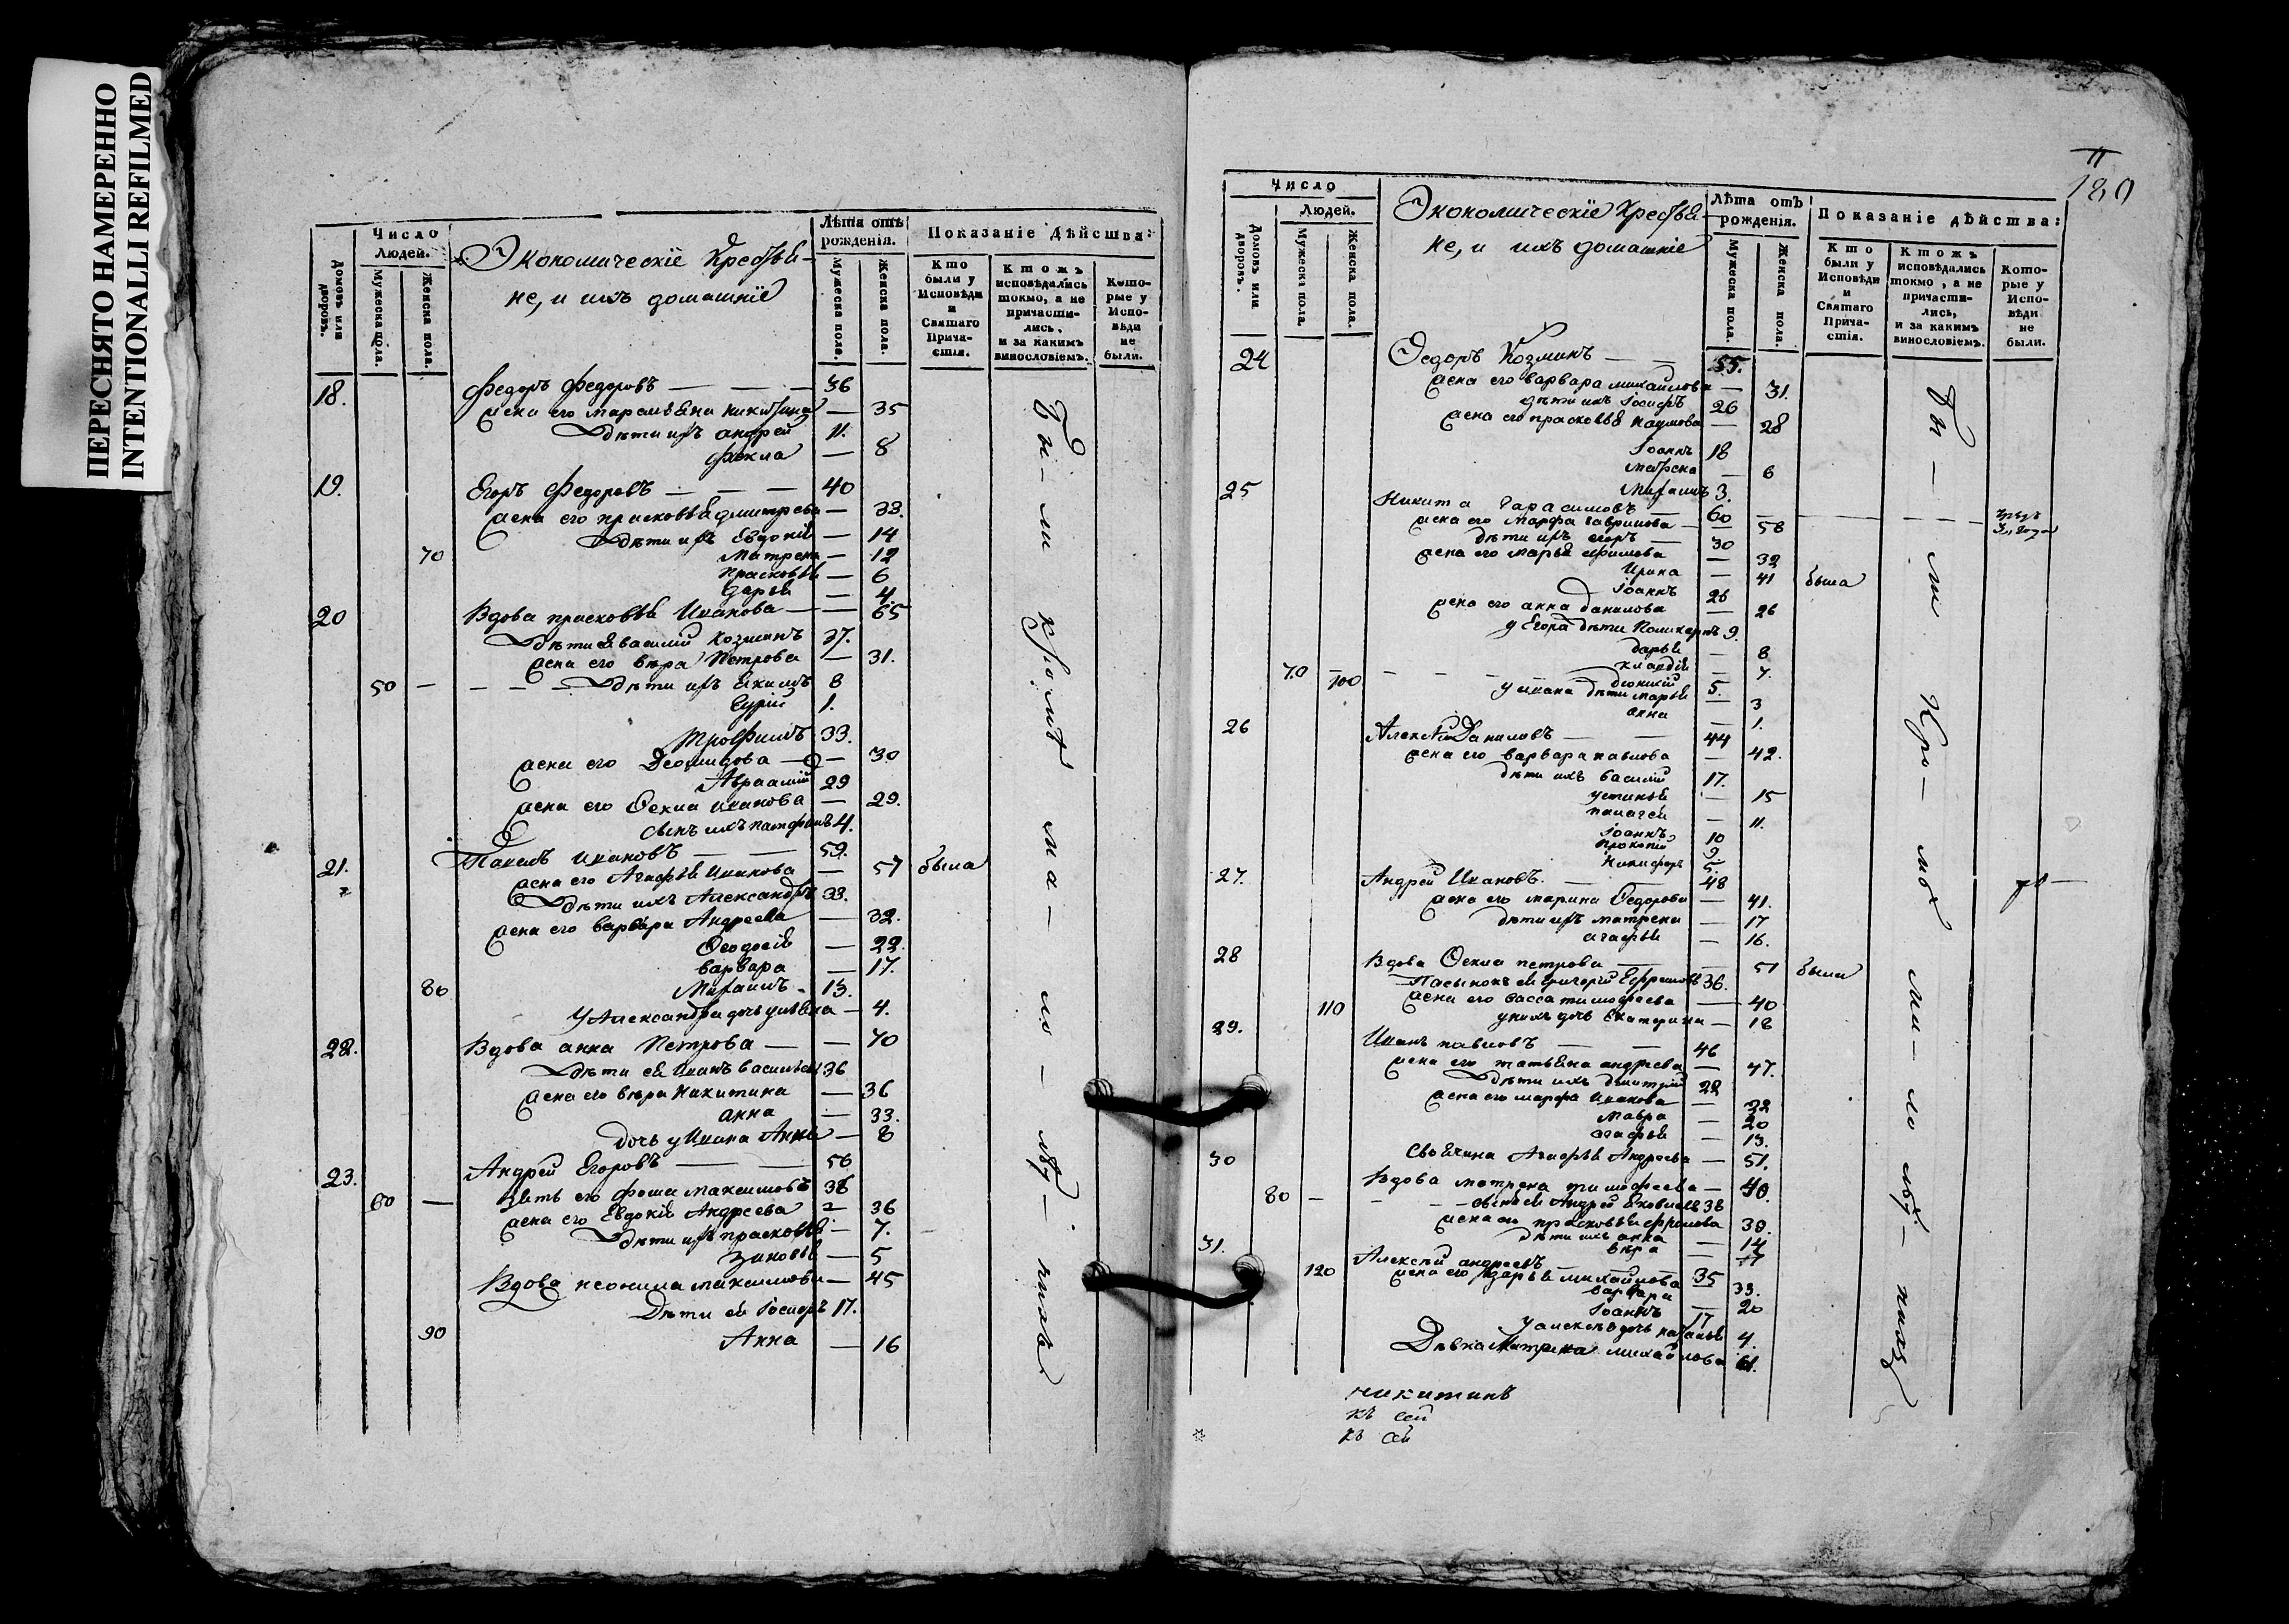 ПЕРЕСНЯТО НАМЕРЕННО
INTENTIONALLI REFILMED
Число
Людей.
Домовъ или дворовъ.
Мужеска пола.
Женска пола.
Экономическіе Крестья-
не, и ихъ домашніе
Лѣта отъ рожденія.
Мужеска пола.
Женска пола.
Показаніе дѣйства:
Кто были у Исповѣди и Святаго Прича-стія.
Ктожъ исповѣдались токмо, а не причасти-лись, и за какимъ винословіемъ.
Кото-рые у Испо-вѣди не были.
18. Федоръ Федоровъ — — — 36
жена его Никитина — 35
дѣти ихъ андрей 11.
Фекла — 8
19. Егоръ Федоровъ — — — 40
жена его прасковья дмитрева — 33.
дѣти ихъ Евдокия — 14
70 Матрена — 12
Прасковья — 6
Дарья — 4.
20 Вдова прасковья Иванова — — 65
дѣти ея василий Козминъ 37.
жена его вѣра Петрова — 31.
50 — — — — дѣти ихъ Якимъ 8
Гурий 1.
Трофимъ 33.
жена его — 30
Авраамий 29
жена его Ѳекла Иванова — 29.
сынъ ихъ 4.
21. Павелъ Ивановъ — — 59.
жена его Агафья Иванова — 57 была
дѣти ихъ Александръ 33.
жена его варвара Андреева — 32.
Ѳеодосия — 22
варвара — 17.
80 Михаилъ 13.
у Александра дочь ульяна — 4.
22. Вдова анна Петрова — — 70
дѣти ея Иванъ васильевъ 36
жена его вѣра Никитина — 36
анна — 33.
дочь у Ивана Анна — 8
23. Андрей Егоровъ — — 56
60 — зять его фома максимовъ 38
жена его Евдокия Андреева — 36
дѣти ихъ прасковья — 7.
Зиновья — 5
Вдова неонила максимова — 45
Дѣти ея Іосифъ 17.
90 Анна — 16
180
Число
Людей.
Домовъ или дворовъ.
Мужеска пола.
Женска пола.
Экономическіе Крестья-
не, и ихъ домашніе
Лѣта отъ рожденія.
Мужеска пола.
Женска пола.
Показаніе дѣйства:
Кто были у Исповѣди и Святаго Прича-стія.
Ктожъ исповѣдались токмо, а не причасти-лись, и за какимъ винословіемъ.
Кото-рые у Испо-вѣди не были.
24 Ѳедоръ Козминъ — — 55.
жена его варвара михайлова — 31.
дѣти ихъ Іосифъ 26
жена его прасковья Наумова — 28
Іоаннъ 18
матрена — 6
Михаилъ 3.
25 Никита Гарасимовъ — 60
жена его Марфа Гаврилова — 58
дѣти ихъ егоръ — 30
жена его марья ефимова — 32
Ирина — 41 была
Іоаннъ 26
жена его анна данилова — 26
у Егора дѣти Поликарпъ 9.
дарья — 8
клавдия — 7.
70 100 — — — — 5.
у ивана дѣти марья — 3
анна — 1.
26 Алексѣй Даниловъ — — 44
жена его варвара павлова — 42.
дѣти ихъ василий 17.
устинья — 15
палагея — 11.
Іоаннъ 10
Прокопий 9
Никифоръ 5.
27. Андрей Ивановъ. — — 48
жена его марина Ѳедорова — 41.
дѣти ихъ матрена — 17
агафья — 16.
28 Вдова Ѳекла петрова — — 51 была
Пасынокъ ея григорий Ефремовъ 36.
110 жена его васса тимофеева — 40
у нихъ дочь Екатерина — 18
29. Иванъ павловъ — — 46
жена его татьяна андреева — 47.
дѣти ихъ дмитрий 22
жена его марфа Иванова — 22
мавра — 20
агафья — 13.
свояченя Агафья Андреева — 51.
30 Вдова матрена тимофеева — 40.
80 — — — сынъ ея Андрей Яковлевъ 38
жена его прасковья ефимова 38.
дѣти ихъ анна — 14
вѣра — 7
31. Алексѣй андреевъ — — 35
120 жена его дарья михайлова 33.
варвара — 20
Іоаннъ 17
у алексѣя дочь наталья 4.
Дѣвка Матрена михайлова 61.
никитинъ
къ сей
къ сей